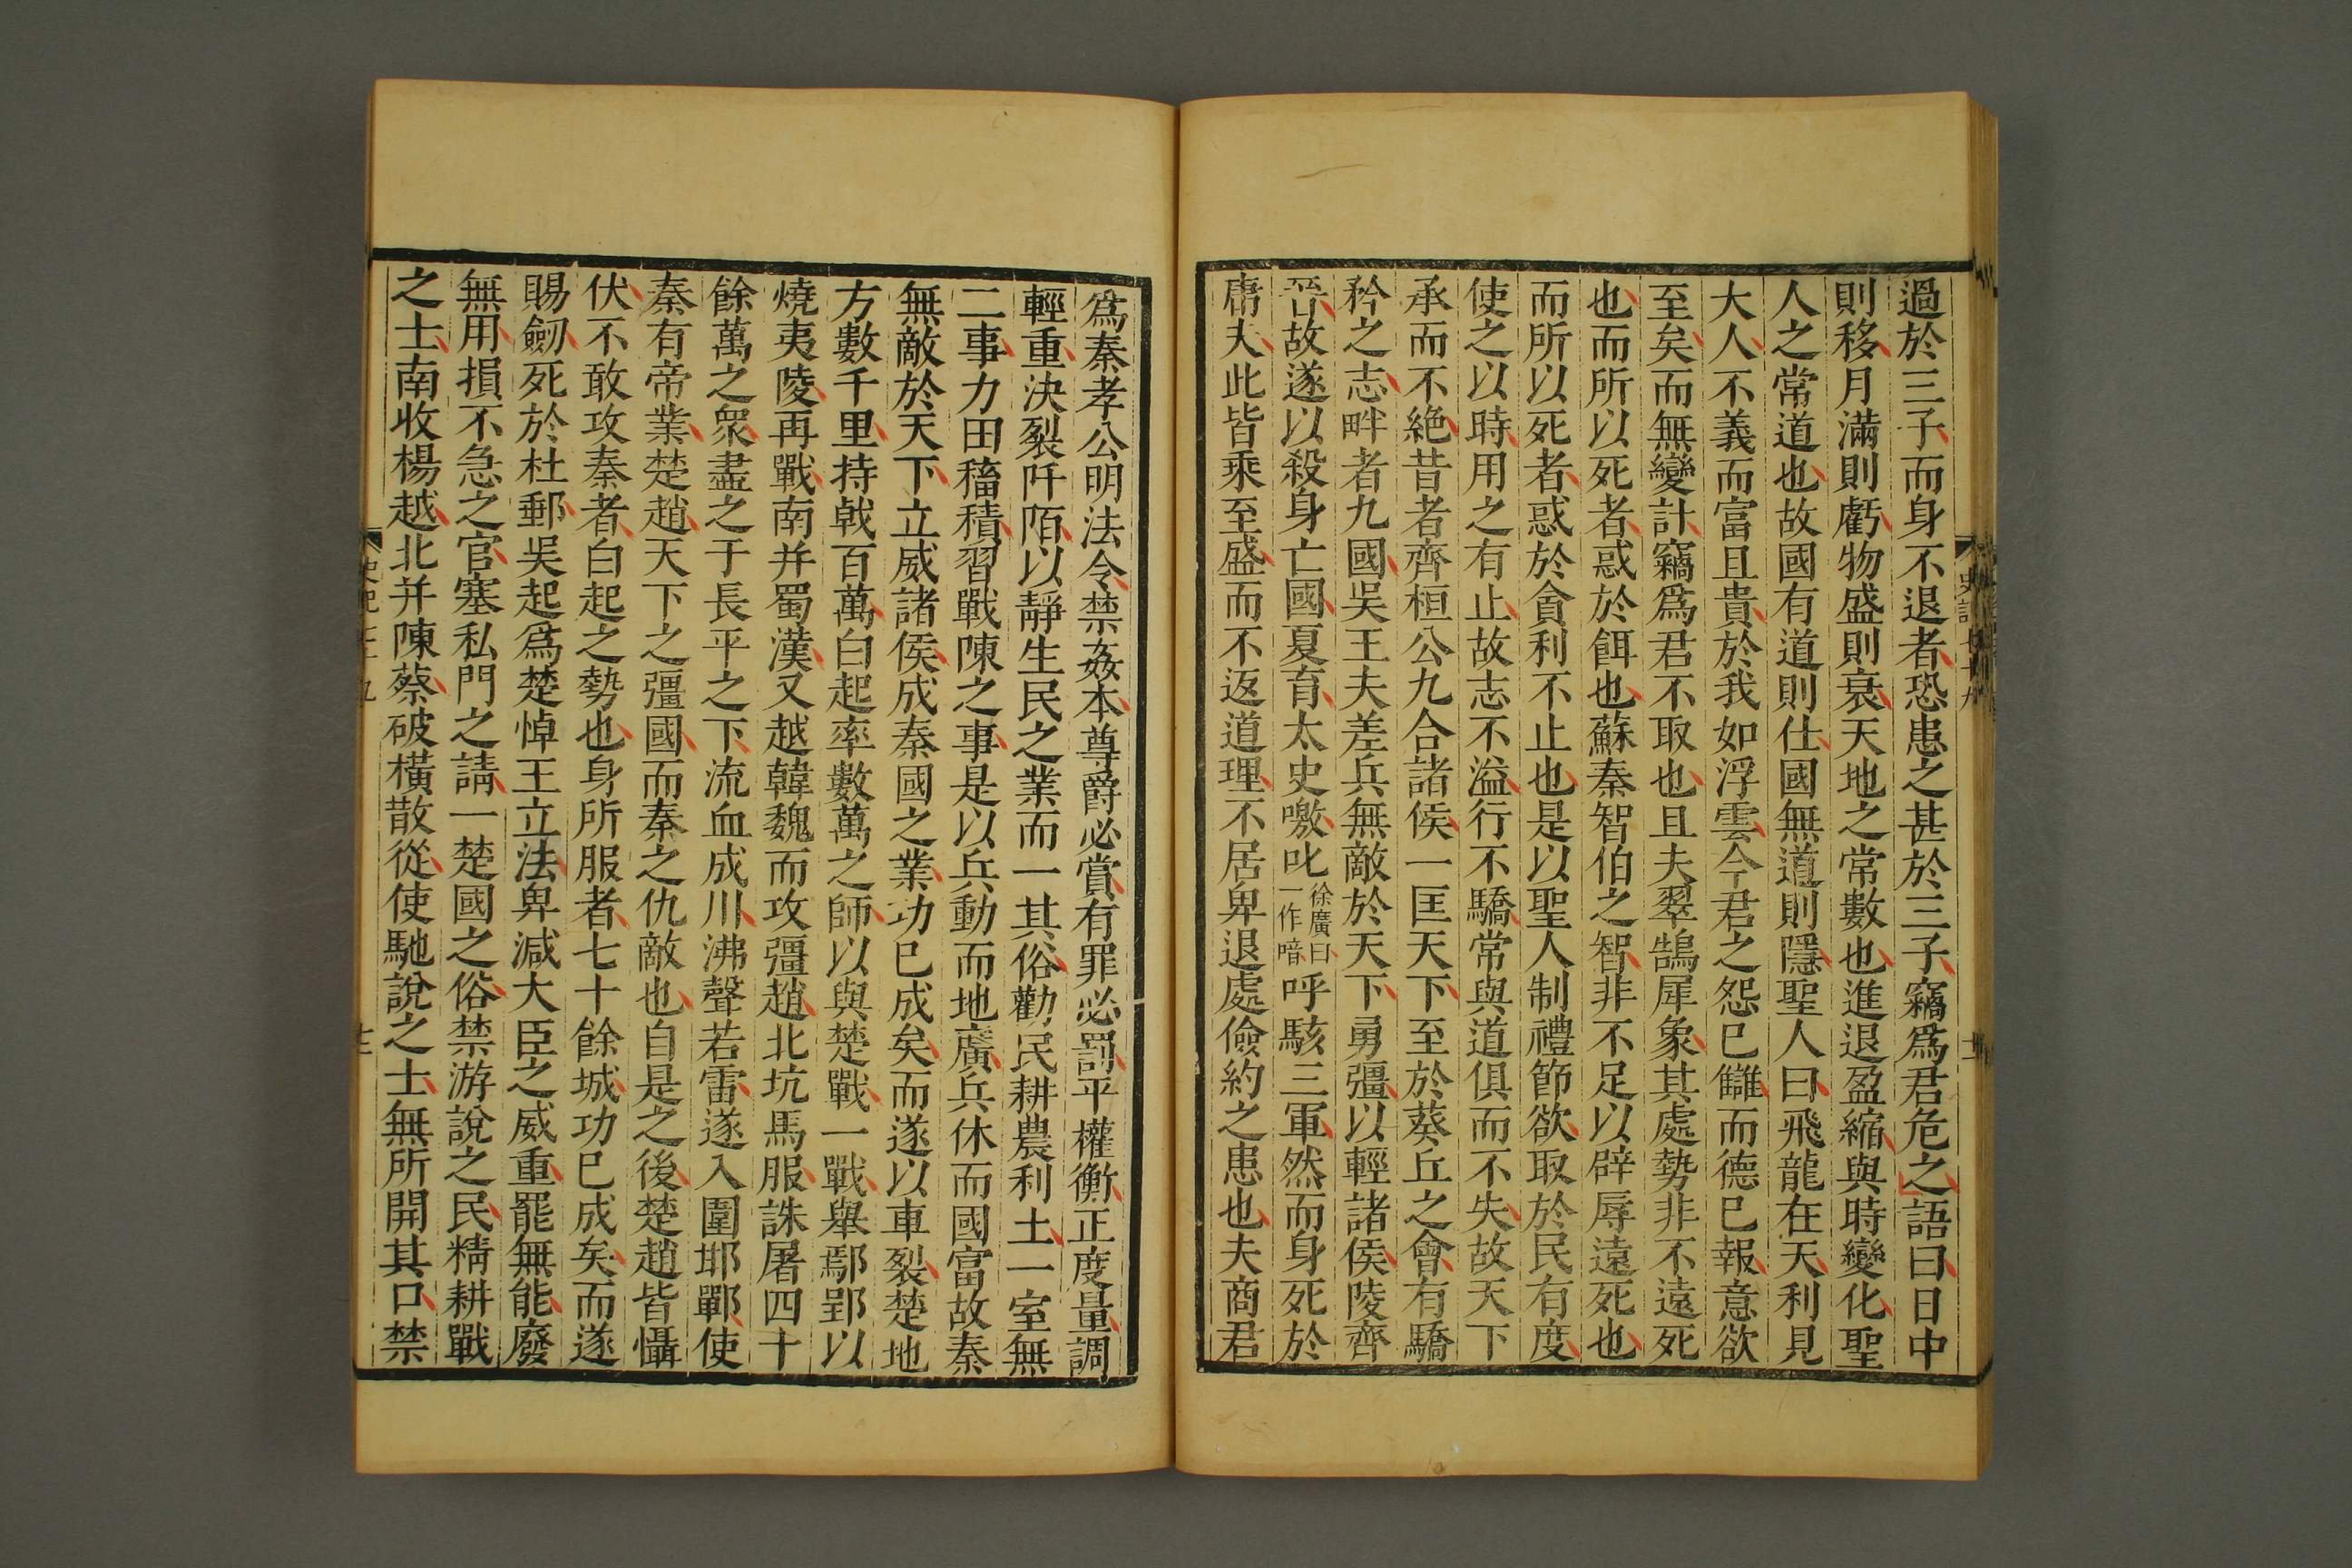 過於三子而身不退者恐患之甚於三子竊爲君危之語曰日中
則移月滿則虧物盛則衰天地之常數也進退盈縮與時變化聖
人之常道也故國有道則仕國無道則隱聖人曰飛龍在天利見
大人不義而富且貴於我如浮雲今君之怨已讎而德已報意欲
至矣而無變計竊爲君不取也且夫翠鵠犀象其處勢非不遠死
也而所以死者惑於餌也蘇秦智伯之智非不足以辟辱遠死也
而所以死者惑於貪利不止也是以聖人制禮節欲取於民有度
使之以時用之有止故志不溢行不驕常與道俱而不失故天下
承而不絶昔者齊桓公九合諸侯一匡天下至於葵丘之會有驕
矜之志畔者九國吳王夫差兵無敵於天下勇彊以輕諸侯陵齊
晉故遂以殺身亡國夏育太史噭叱徐廣曰一作喑呼駭三軍然而身死於
庸夫此皆乘至盛而不返道理不居卑退處儉約之患也夫商君
史記七十九
十二
爲秦孝公明法令禁姦本尊爵必賞有罪必罰平權衡正度量調
輕重決裂阡陌以靜生民之業而一其俗勸民耕農利土一室無
二事力田稸積習戰陳之事是以兵動而地廣兵休而國富故秦
無敵於天下立威諸侯成秦國之業功已成矣而遂以車裂楚地
方數千里持戟百萬白起率數萬之師以與楚戰一戰舉鄢郢以
燒夷陵再戰南并蜀漢又越韓魏而攻彊趙北坑馬服誅屠四十
餘萬之衆盡之于長平之下流血成川沸聲若雷遂入圍邯鄲使
秦有帝業楚趙天下之彊國而秦之仇敵也自是之後楚趙皆懾
伏不敢攻秦者白起之勢也身所服者七十餘城功已成矣而遂
賜劒死於杜郵吳起爲楚悼王立法卑減大臣之威重罷無能廢
無用損不急之官塞私門之請一楚國之俗禁游說之民精耕戰
之士南收楊越北并陳蔡破橫散從使馳說之士無所開其口禁